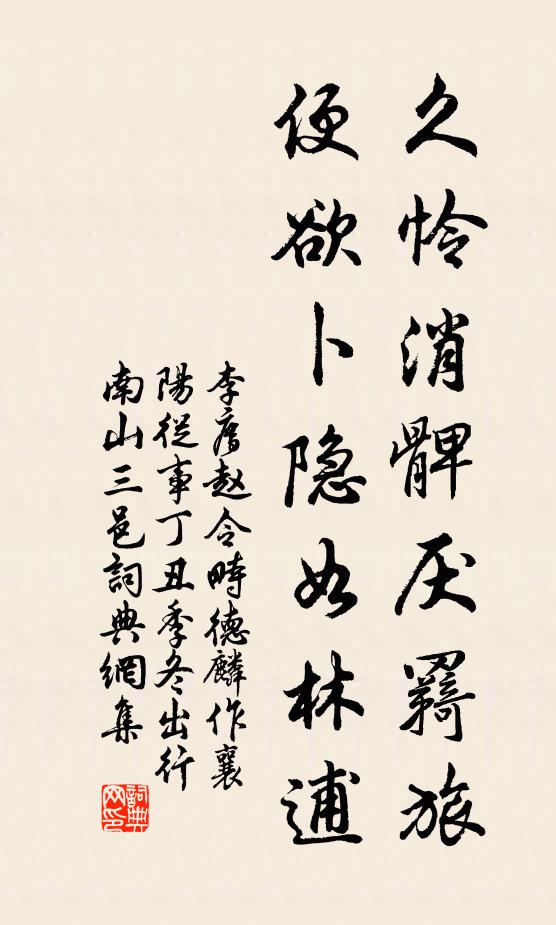 久怜消髀厌羇旅
便欲卜隐如林逋
李廌赵令畤德麟作襄
陽從事丁丑季冬出行
南山三邑詞典網集
詞典网印